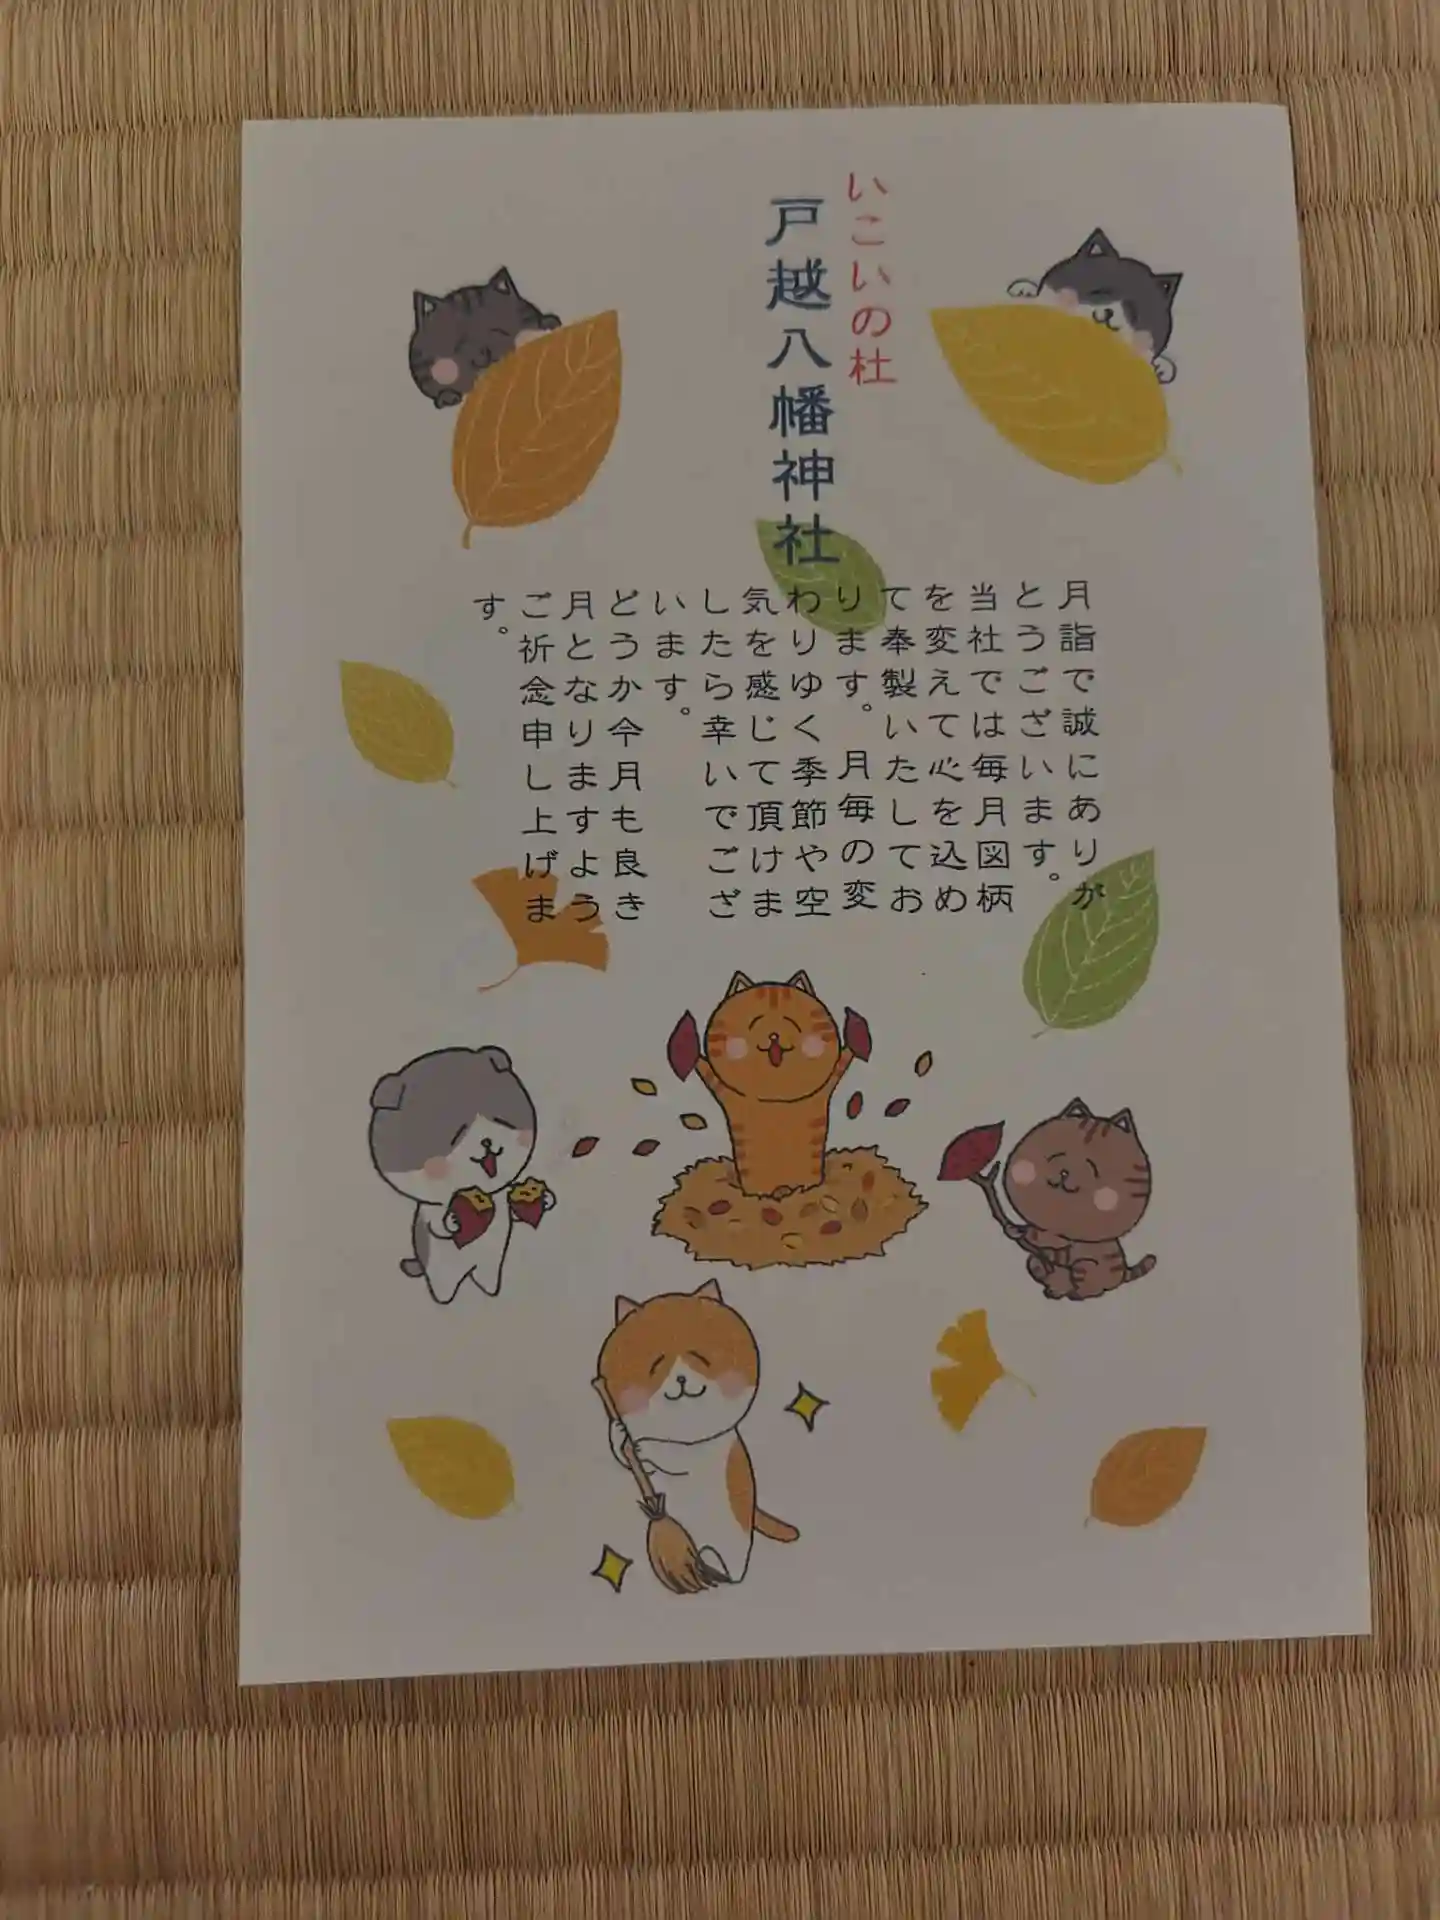 いこいの杜
戸越八幡神社
月詣で誠にありが
とうございます。
当社では毎月図柄
を変えて心を込め
て奉製いたしてお
ります。月毎の変
わりゆく季節や空
気を感じて頂けま
したら幸いでござ
います。
どうか今月も良き
月となりますよう
ご祈念申し上げま
す。